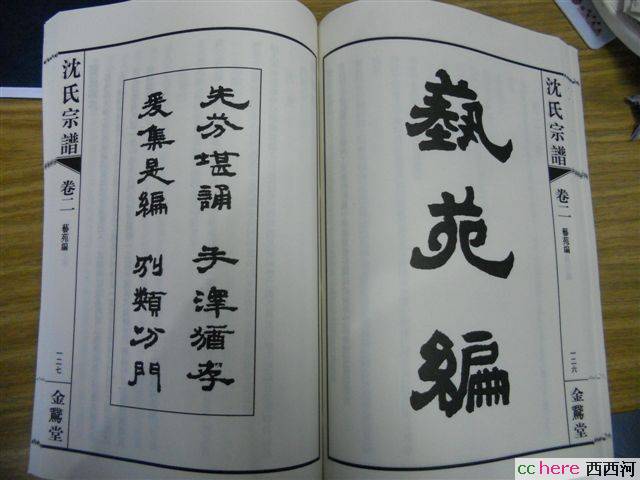 沈氏宗譜
卷二
藝苑編
一二六
金鵞堂
蓺苑編
先芬堪誦 手澤猶存
爰集是編 別類分門
沈氏宗譜
卷二
藝苑編
一二七
金鵞堂
cchere 西西河